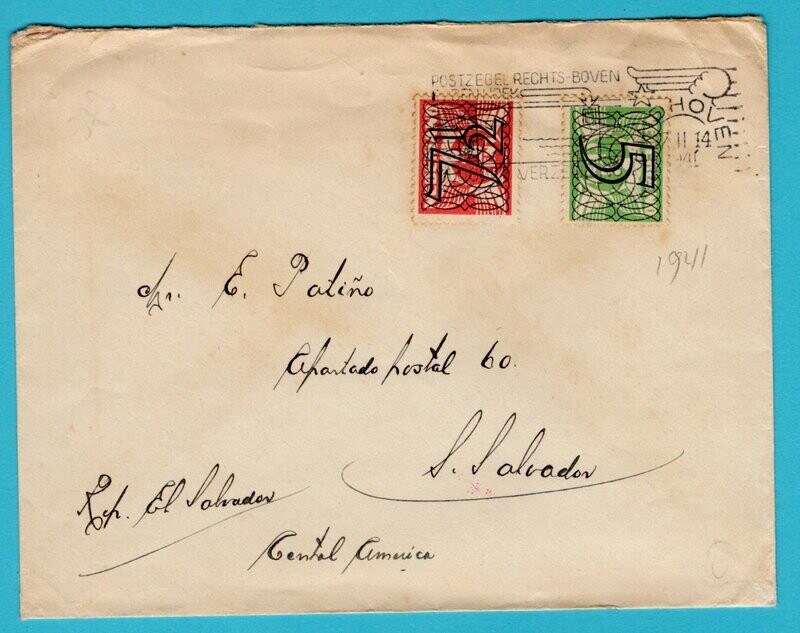 POSTZEGEL RECHTS-BOVEN
7½
5
II 14
1941
Sr. E. Patiño
Apartado postal 60.
S. Salvador
Rep. El Salvador
Cental America